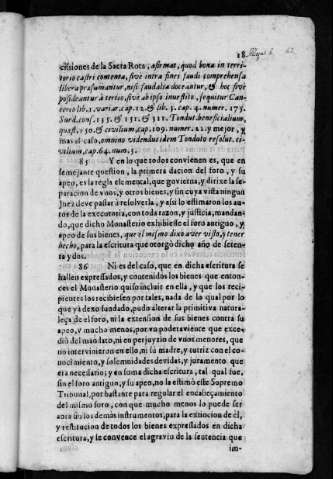 18.
cisiones de la Sacra Rota, afirmat, quod bona in terri-
torio castri contenta, sive intra fines feudi comprehensa
libera præsumantur, nisi feudalia doceantur, & hoc sive
possideantur à tertio, sive ab ipso investito, sequitur Can-
cerio lib. 1. variar. cap. 12. & lib. 3. cap. 4. numer. 175.
Surd. cons. 135. & 151. & 311. Tondut. beneficialium,
quæst. 150. & civilium, cap. 109. numer. 12. y mejor, y
mas al caso, omnino videndus idem Tonduto resolut. ci-
vilium, cap. 64. num. 5.
85 Y en lo que todos convienen es, que en
semejante question, la primera dacion del foro, y su
apeo, es la regla elemental, que govierna, y dirixe la se-
paracion de unos, y otros bienes, y sin cuya vista ningun
Juez deve passar à resolverla, y assi lo estimaron los au-
tos de la executoria, con toda razon, y justicia, mandan-
do, que dicho Monasterio exhibiesse el foro antiguo, y
apeo de sus bienes, que el mismo dixo aver visto, y tener
hecho, para la escritura que otorgò dicho año de seten-
ta y dos.
86 Ni es del caso, que en dicha escritura se
hallen expressados, y contenidos los bienes que enton-
ces el Monasterio quiso incluir en ella, y que los reci-
pientes los recibiesen por tales, nada de la qual por lo
que yà dexo fundado, pudo alterar la primitiva natura-
leça de el foro, ni la extension de sus bienes contra su
apeo, y mucho menos, por vapodetavience que exce-
diò del mandato, ni en perjuyzio de unos menores, que
no intervinieron en ello, ni su madre, y tutriz con el co-
nocimiento, y solemnidades devidas, y juramento que
era necesario; y en soma dicha escritura, tal qual fue,
sin el foro antiguo, y su apeo, no la estimò este Supremo
Tribunal, por bastante para regular el encabeçamiento
del mismo foro, con que mucho menos lo puede ser
aora sin los demàs instrumentos, para la extincion de èl,
y restitucion de todos los bienes expressados en dicha
escritura, y se convence el agravio de la sentencia que
im-